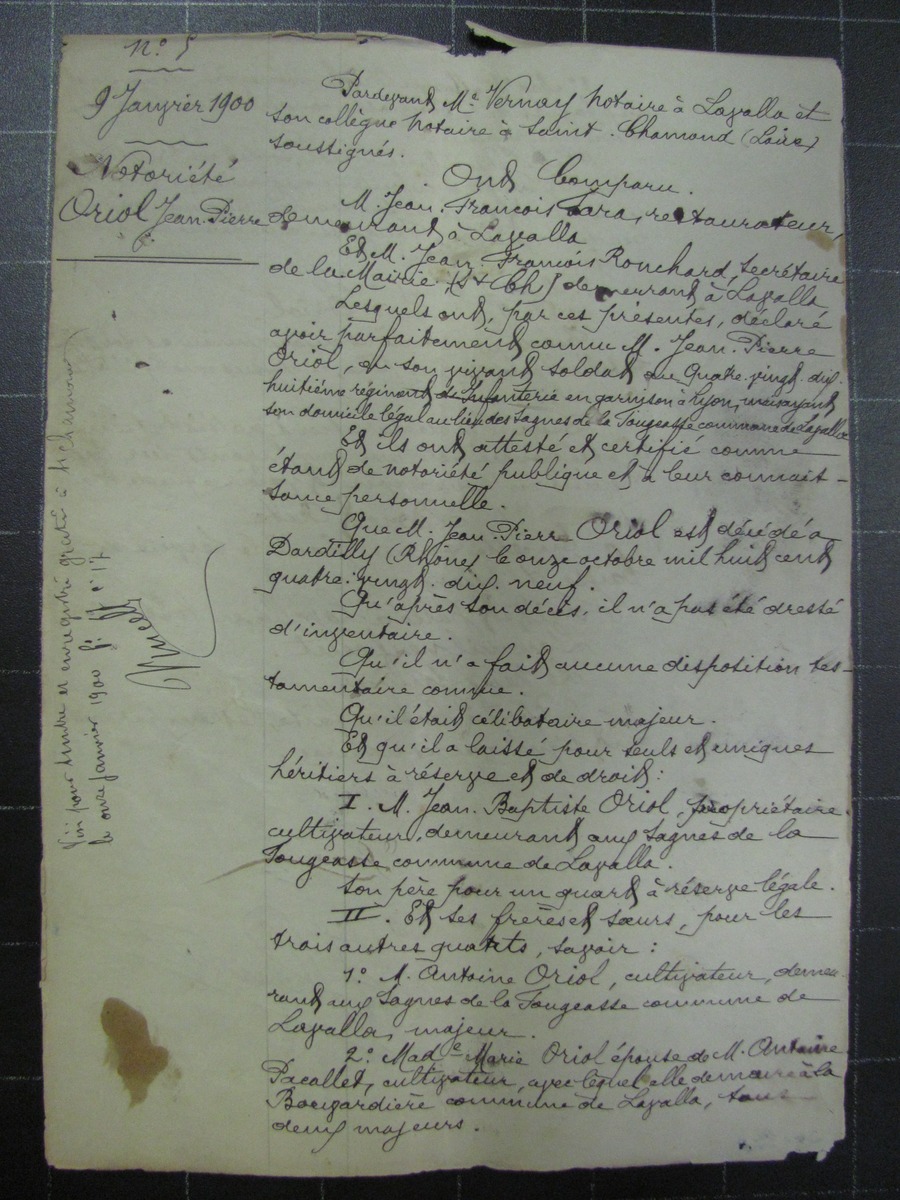 N.o 5
9 Janvier 1900
Notoriété
Oriol Jean-Pierre
Pardevant Me Vernay notaire à Lavalla et
son collègue notaire à Saint-Chamond (Loire)
soussignés.
Ont Comparu.
M. Jean-François Tara, restaurateur,
demeurant à Lavalla
Et M. Jean-François Ronchard, Secrétaire
de la Mairie demeurant à Lavalla
Lesquels ont, par ces présentes, déclaré
avoir parfaitement connu M. Jean-Pierre
Oriol, en son vivant soldat au Quatre-vingt-dix-
huitième régiment de Infanterie en garnison à Lyon, mais ayant
son domicile légal au lieu des Sagnes de la Fougeasse commune de Lavalla
Et ils ont attesté et certifié comme
étant de notoriété publique et à leur connais-
sance personnelle.
Que M. Jean-Pierre Oriol est décédé à
Dardilly (Rhône) le onze octobre mil huit cent
quatre-vingt-dix-neuf.
Qu'après son décès, il n'a pas été dressé
d'inventaire.
Qu'il n'a fait aucune disposition tes-
tamentaire connue.
Qu'il était célibataire majeur.
Et qu'il a laissé pour seuls et uniques
héritiers à réserve et de droit:
I. M. Jean-Baptiste Oriol, propriétaire-
cultivateur, demeurant aux Sagnes de la
Fougeasse commune de Lavalla.
Son père pour un quart à réserve légale.
II. Et ses frères et sœurs, pour les
trois autres quarts, savoir:
1.o M. Antoine Oriol, cultivateur, demeu-
rant aux Sagnes de la Fougeasse commune de
Lavalla, majeur.
2.o Made Marie Oriol épouse de M. Antoine
Pacallet, cultivateur, avec lequel elle demeure à la
Bougardière commune de Lavalla, tous
deux majeurs.
Visé pour timbre et enregistré gratis à St Chamond
le onze janvier 1900